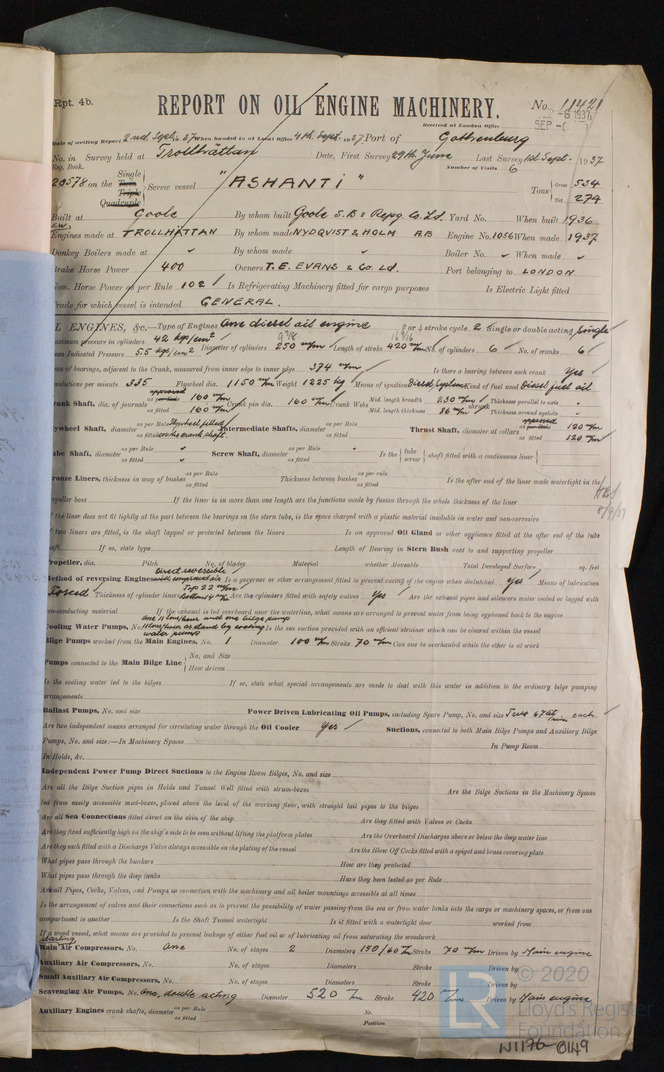 Rpt. 4b.
REPORT ON OIL ENGINE MACHINERY.
No. 11421
Received at London Office
SEP -6 1937
Date of writing Report 2nd Sept. 1937 When handed in at Local Office 4th Sept. 1937 Port of Gothenburg
No. in Survey held at Trollhättan Date, First Survey 29th June Last Survey 1st Sept. 1937
Reg. Book. Number of Visits 6
20578 on the Single Twin Triple Quadruple Screw vessel "ASHANTI" Tons Gross 534 Net 274
Built at Goole By whom built Goole S.B. & Repg. Co. Ld. Yard No. When built 1936
Engines made at TROLLHÄTTAN By whom made NYDQVIST & HOLM AB Engine No. 1056 When made 1937
Donkey Boilers made at By whom made Boiler No. When made
Brake Horse Power 400 Owners T.E. EVANS & Co. Ld. Port belonging to LONDON
Nom. Horse Power as per Rule 102 Is Refrigerating Machinery fitted for cargo purposes Is Electric Light fitted
Trade for which vessel is intended GENERAL.
OIL ENGINES, &c.—Type of Engines One diesel oil engine 2 or 4 stroke cycle 2 Single or double acting single
Maximum pressure in cylinders 42 kgs/cm² Diameter of cylinders 250 m/m Length of stroke 420 m/m No. of cylinders 6 No. of cranks 6
Mean Indicated Pressure 5.5 kgs/cm²
Span of bearings, adjacent to the Crank, measured from inner edge to inner edge 374 m/m Is there a bearing between each crank Yes
Revolutions per minute 335 Flywheel dia. 1150 m/m Weight 1225 kg Means of ignition Diesel system Kind of fuel used Diesel fuel oil
Crank Shaft, dia. of journals approved 160 m/m as fitted 160 m/m Crank pin dia. 160 m/m Crank Webs Mid. length breadth 230 m/m Thickness parallel to axis
Mid. length thickness 86 m/m shrunk Thickness around eyehole
Flywheel Shaft, diameter as per Rule Flywheel fitted as fitted on the crank shaft. Intermediate Shafts, diameter as per Rule as fitted Thrust Shaft, diameter at collars approved 120 m/m as fitted 120 m/m
Tube Shaft, diameter as per Rule as fitted Screw Shaft, diameter as per Rule as fitted Is the tube screw shaft fitted with a continuous liner
Bronze Liners, thickness in way of bushes as per Rule as fitted Thickness between bushes as per rule as fitted Is the after end of the liner made watertight in the
propeller boss If the liner is in more than one length are the junctions made by fusion through the whole thickness of the liner
If the liner does not fit tightly at the part between the bearings in the stern tube, is the space charged with a plastic material insoluble in water and non-corrosive
If two liners are fitted, is the shaft lapped or protected between the liners Is an approved Oil Gland or other appliance fitted at the after end of the tube
shaft If so, state type Length of Bearing in Stern Bush next to and supporting propeller
Propeller, dia. Pitch No. of blades Material whether Moveable Total Developed Surface sq. feet
Method of reversing Engines direct reversible with compressed air Is a governor or other arrangement fitted to prevent racing of the engine when declutched Yes Means of lubrication
forced Thickness of cylinder liners Top 22 m/m Are the cylinders fitted with safety valves Yes Are the exhaust pipes and silencers water cooled or lagged with
non-conducting material If the exhaust is led overboard near the waterline, what means are arranged to prevent water being syphoned back to the engine
Cooling Water Pumps, No. Is the sea suction provided with an efficient strainer which can be cleared within the vessel
Bilge Pumps worked from the Main Engines, No. 1 Diameter 100 m/m Stroke 70 m/m Can one be overhauled while the other is at work
Pumps connected to the Main Bilge Line No. and Size
How driven
Is the cooling water led to the bilges If so, state what special arrangements are made to deal with this water in addition to the ordinary bilge pumping
arrangements
Ballast Pumps, No. and size Power Driven Lubricating Oil Pumps, including Spare Pump, No. and size Two each.
Are two independent means arranged for circulating water through the Oil Cooler Yes Suctions, connected to both Main Bilge Pumps and Auxiliary Bilge
Pumps, No. and size:—In Machinery Spaces In Pump Room
In Holds, &c.
Independent Power Pump Direct Suctions to the Engine Room Bilges, No. and size
Are all the Bilge Suction pipes in Holds and Tunnel Well fitted with strum-boxes Are the Bilge Suctions in the Machinery Spaces
led from easily accessible mud-boxes, placed above the level of the working floor, with straight tail pipes to the bilges
Are all Sea Connections fitted direct on the skin of the ship Are they fitted with Valves or Cocks
Are they fixed sufficiently high on the ship's side to be seen without lifting the platform plates Are the Overboard Discharges above or below the deep water line
Are they each fitted with a Discharge Valve always accessible on the plating of the vessel Are the Blow Off Cocks fitted with a spigot and brass covering plate
What pipes pass through the bunkers How are they protected
What pipes pass through the deep tanks Have they been tested as per Rule
Are all Pipes, Cocks, Valves, and Pumps in connection with the machinery and oil boiler mountings accessible at all times
Is the arrangement of valves and their connections such as to prevent the possibility of water passing from the sea or from water tanks into the cargo or machinery spaces, or from one
compartment to another Is the Shaft Tunnel watertight Is it fitted with a watertight door worked from
If a wood vessel, what means are provided to prevent leakage of either fuel oil or of lubricating oil from saturating the woodwork
starting
Main Air Compressors, No. One No. of stages 2 Diameters 130/60 m/m Stroke 70 m/m Driven by Main engine
Auxiliary Air Compressors, No. No. of stages Diameters Stroke Driven by
Small Auxiliary Air Compressors, No. No. of stages Diameters Stroke Driven by
Scavenging Air Pumps, No. One, double acting Diameter 520 m/m Stroke 420 m/m Driven by Main engine
Auxiliary Engines crank shafts, diameter as per Rule as fitted No. Position
© 2020
Lloyd's Register
Foundation
W1176-0149